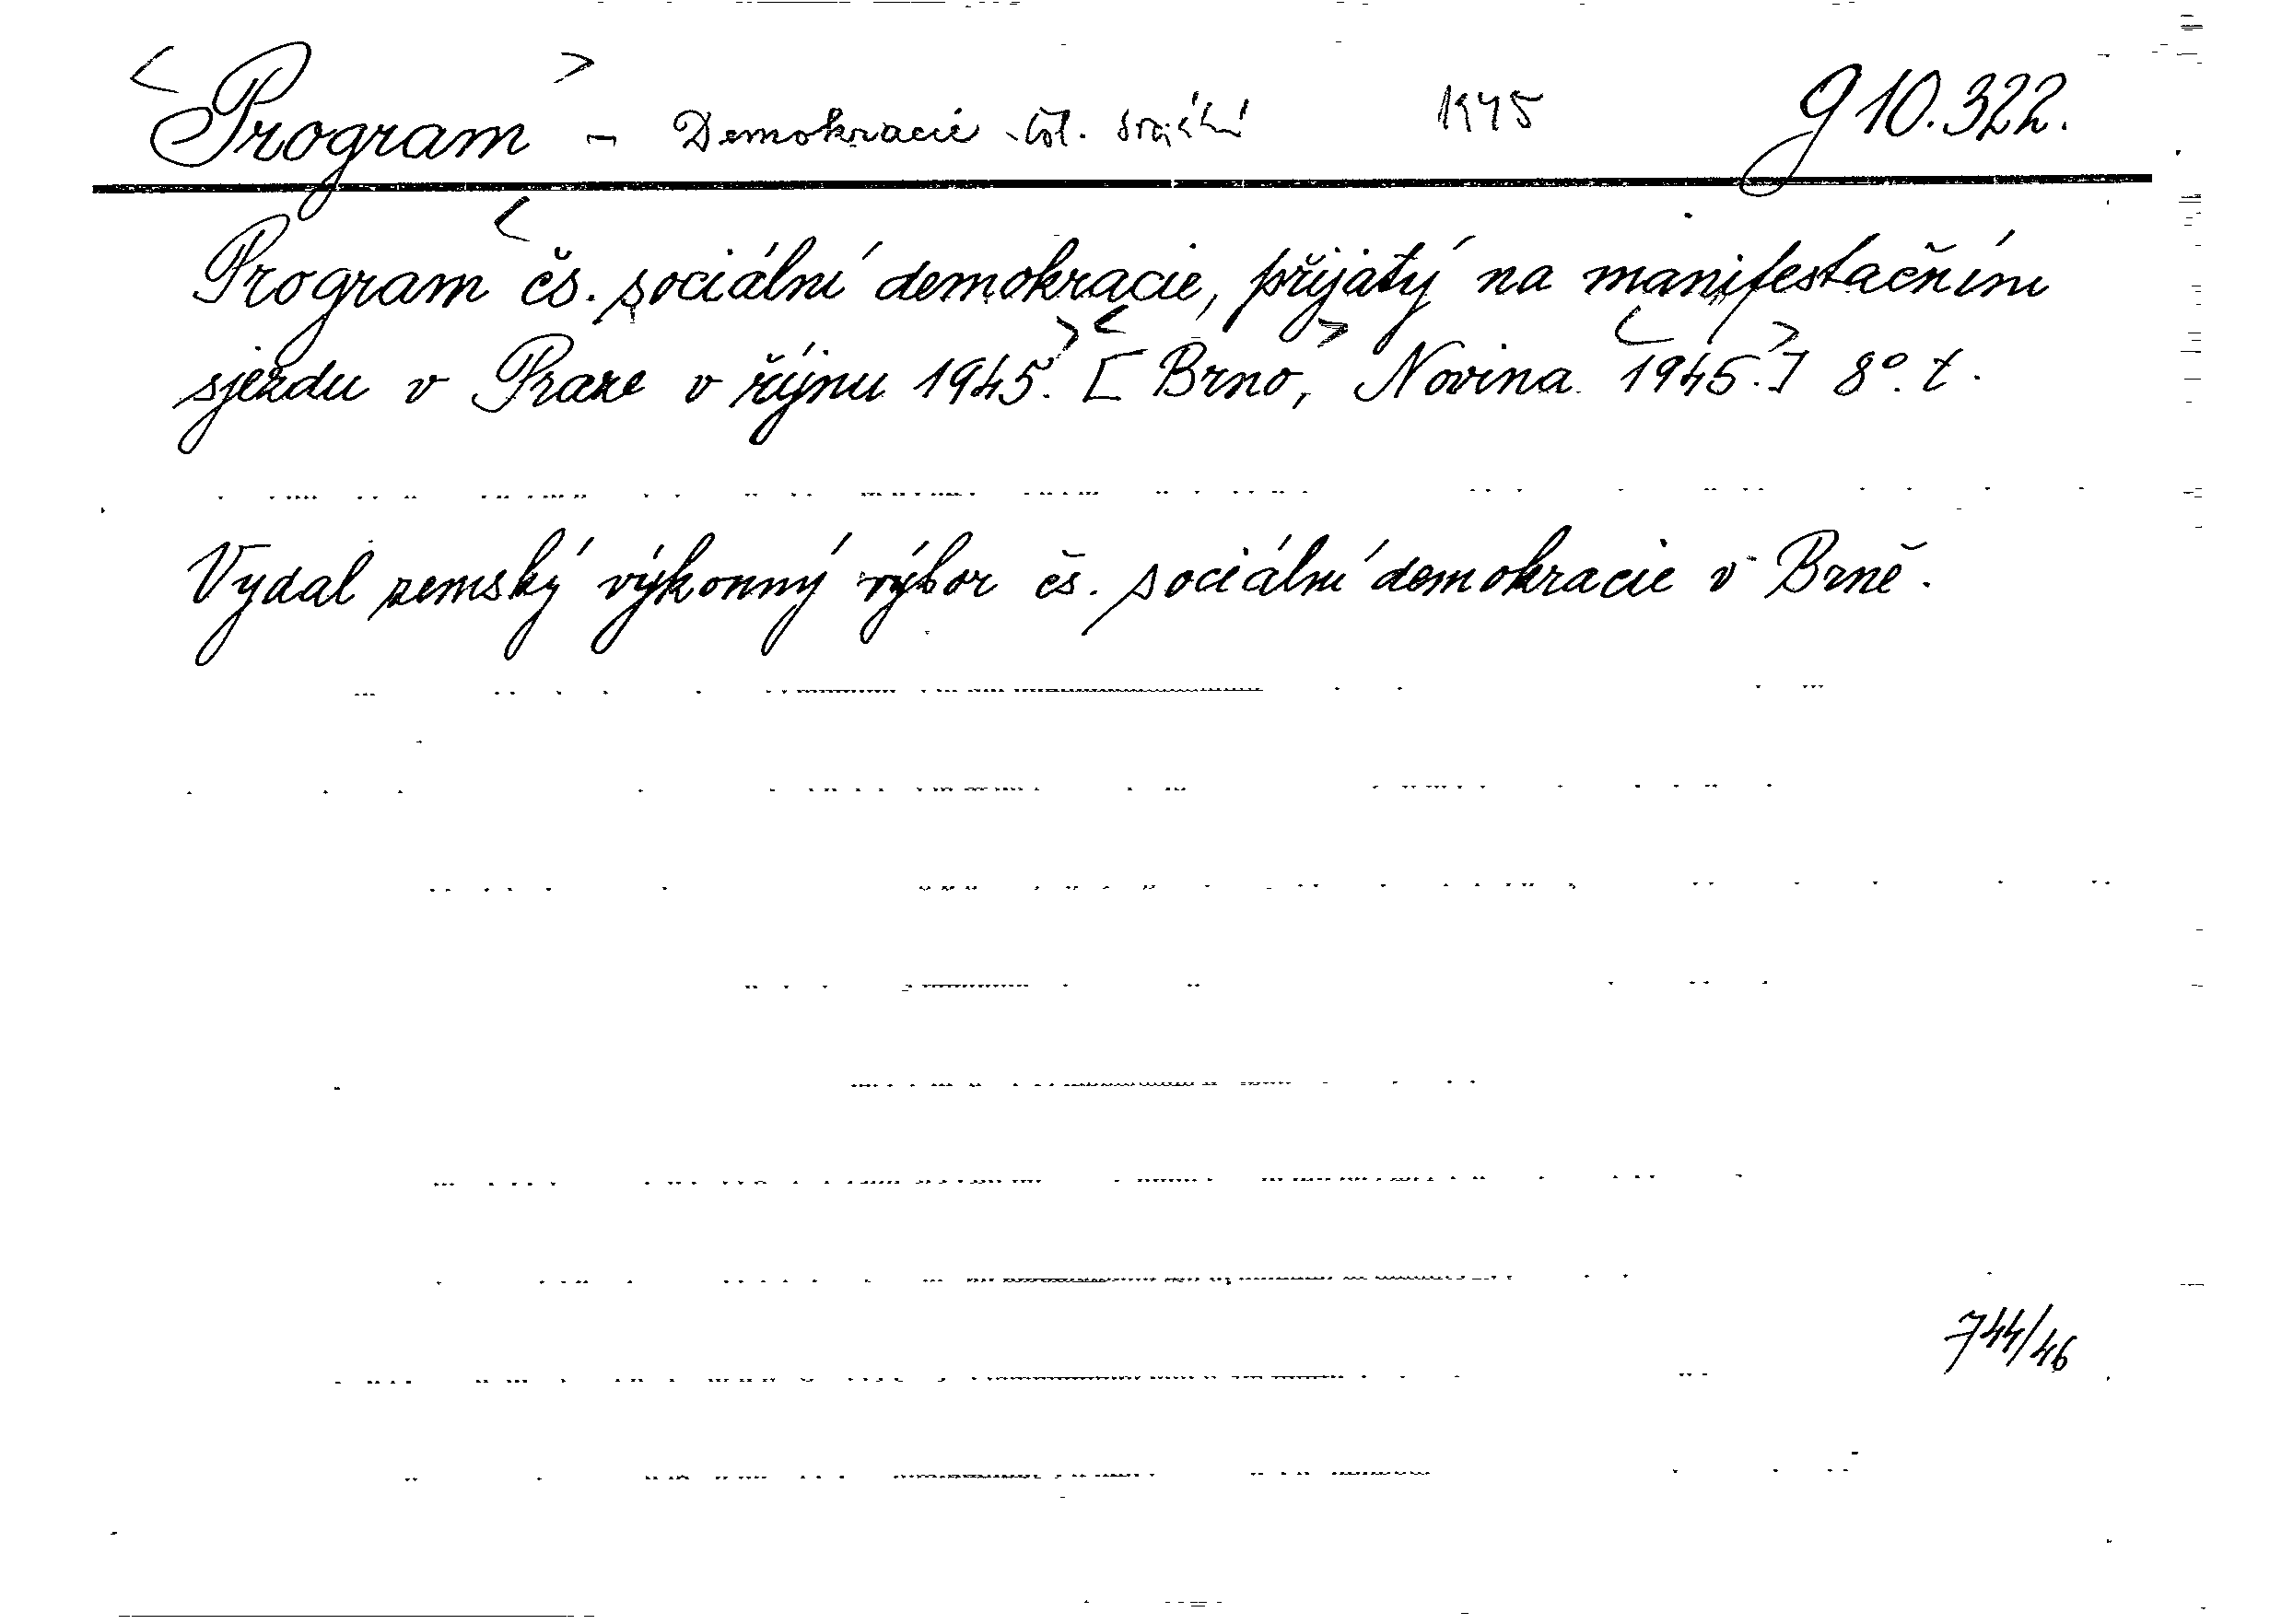 <Program> - Demokracie čsl. sociální 1945 g 10.322.
Program <čs. sociální demokracie, přijatý na manifestačním
sjezdu v Praze v říjnu 1945.> [<Brno,> Novina <1945.>] 8°. t.
Vydal zemský výkonný výbor čs. sociální demokracie v Brně.
744/46